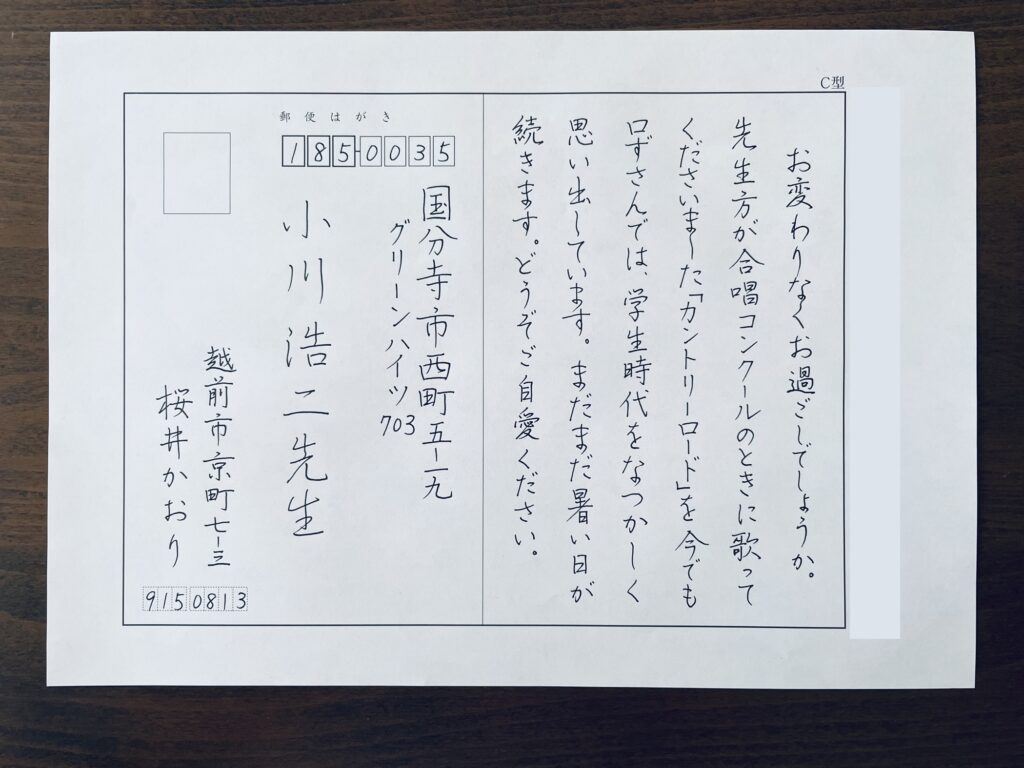 C型
お変わりなくお過ごしでしょうか。
先生方が合唱コンクールのときに歌って
くださいました「カントリーロード」を今でも
口ずさんでは、学生時代をなつかしく
思い出しています。まだまだ暑い日が
続きます。どうぞご自愛ください。
郵便はがき
185-0035
国分寺市西町五-一九
グリーンハイツ
703
小川浩二先生
越前市京町七-三
桜井かおり
9150813